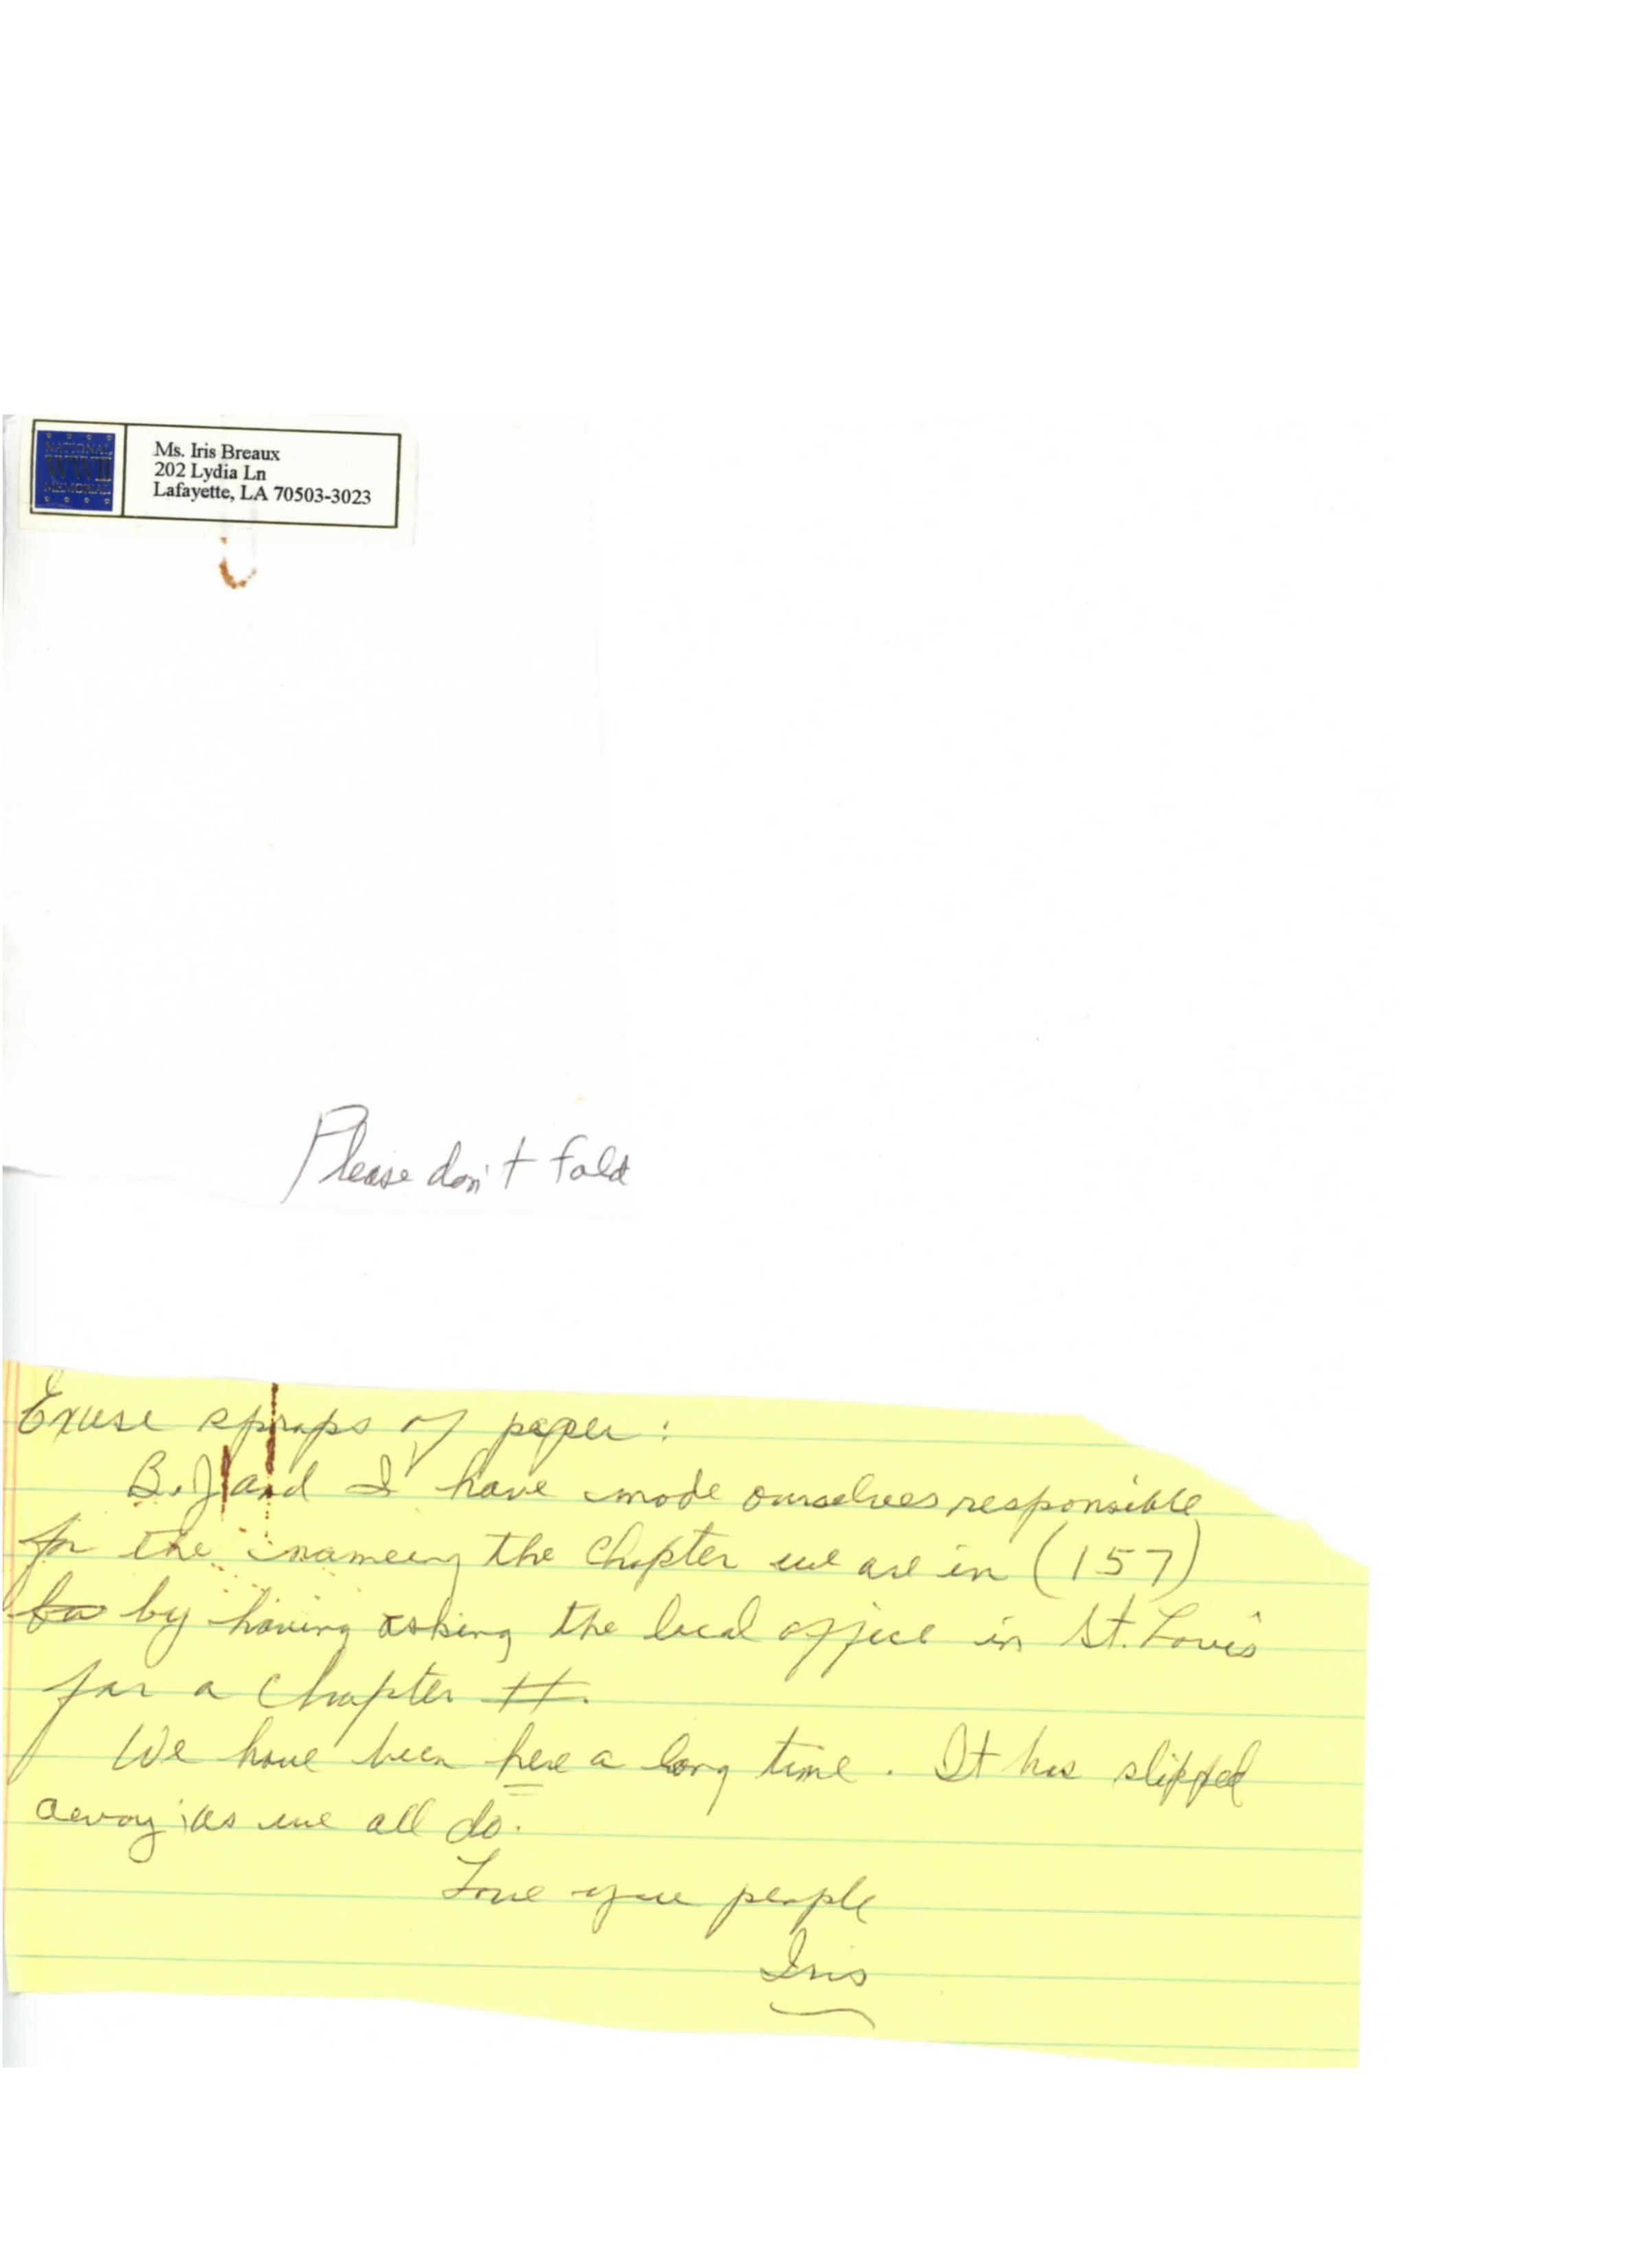 NATIONAL
WWII
MEMORIAL
Ms. Iris Breaux
202 Lydia Ln
Lafayette, LA 70503-3023
Please don't fold
Exuse scraps of paper:
B.J and I have made ourselves responsible
for the nameing the Chapter we are in (157)
by having asking the local office in St. Louis
for a Chapter #.
We have been here a long time. It has slipped
away as we all do.
Love you people
Iris